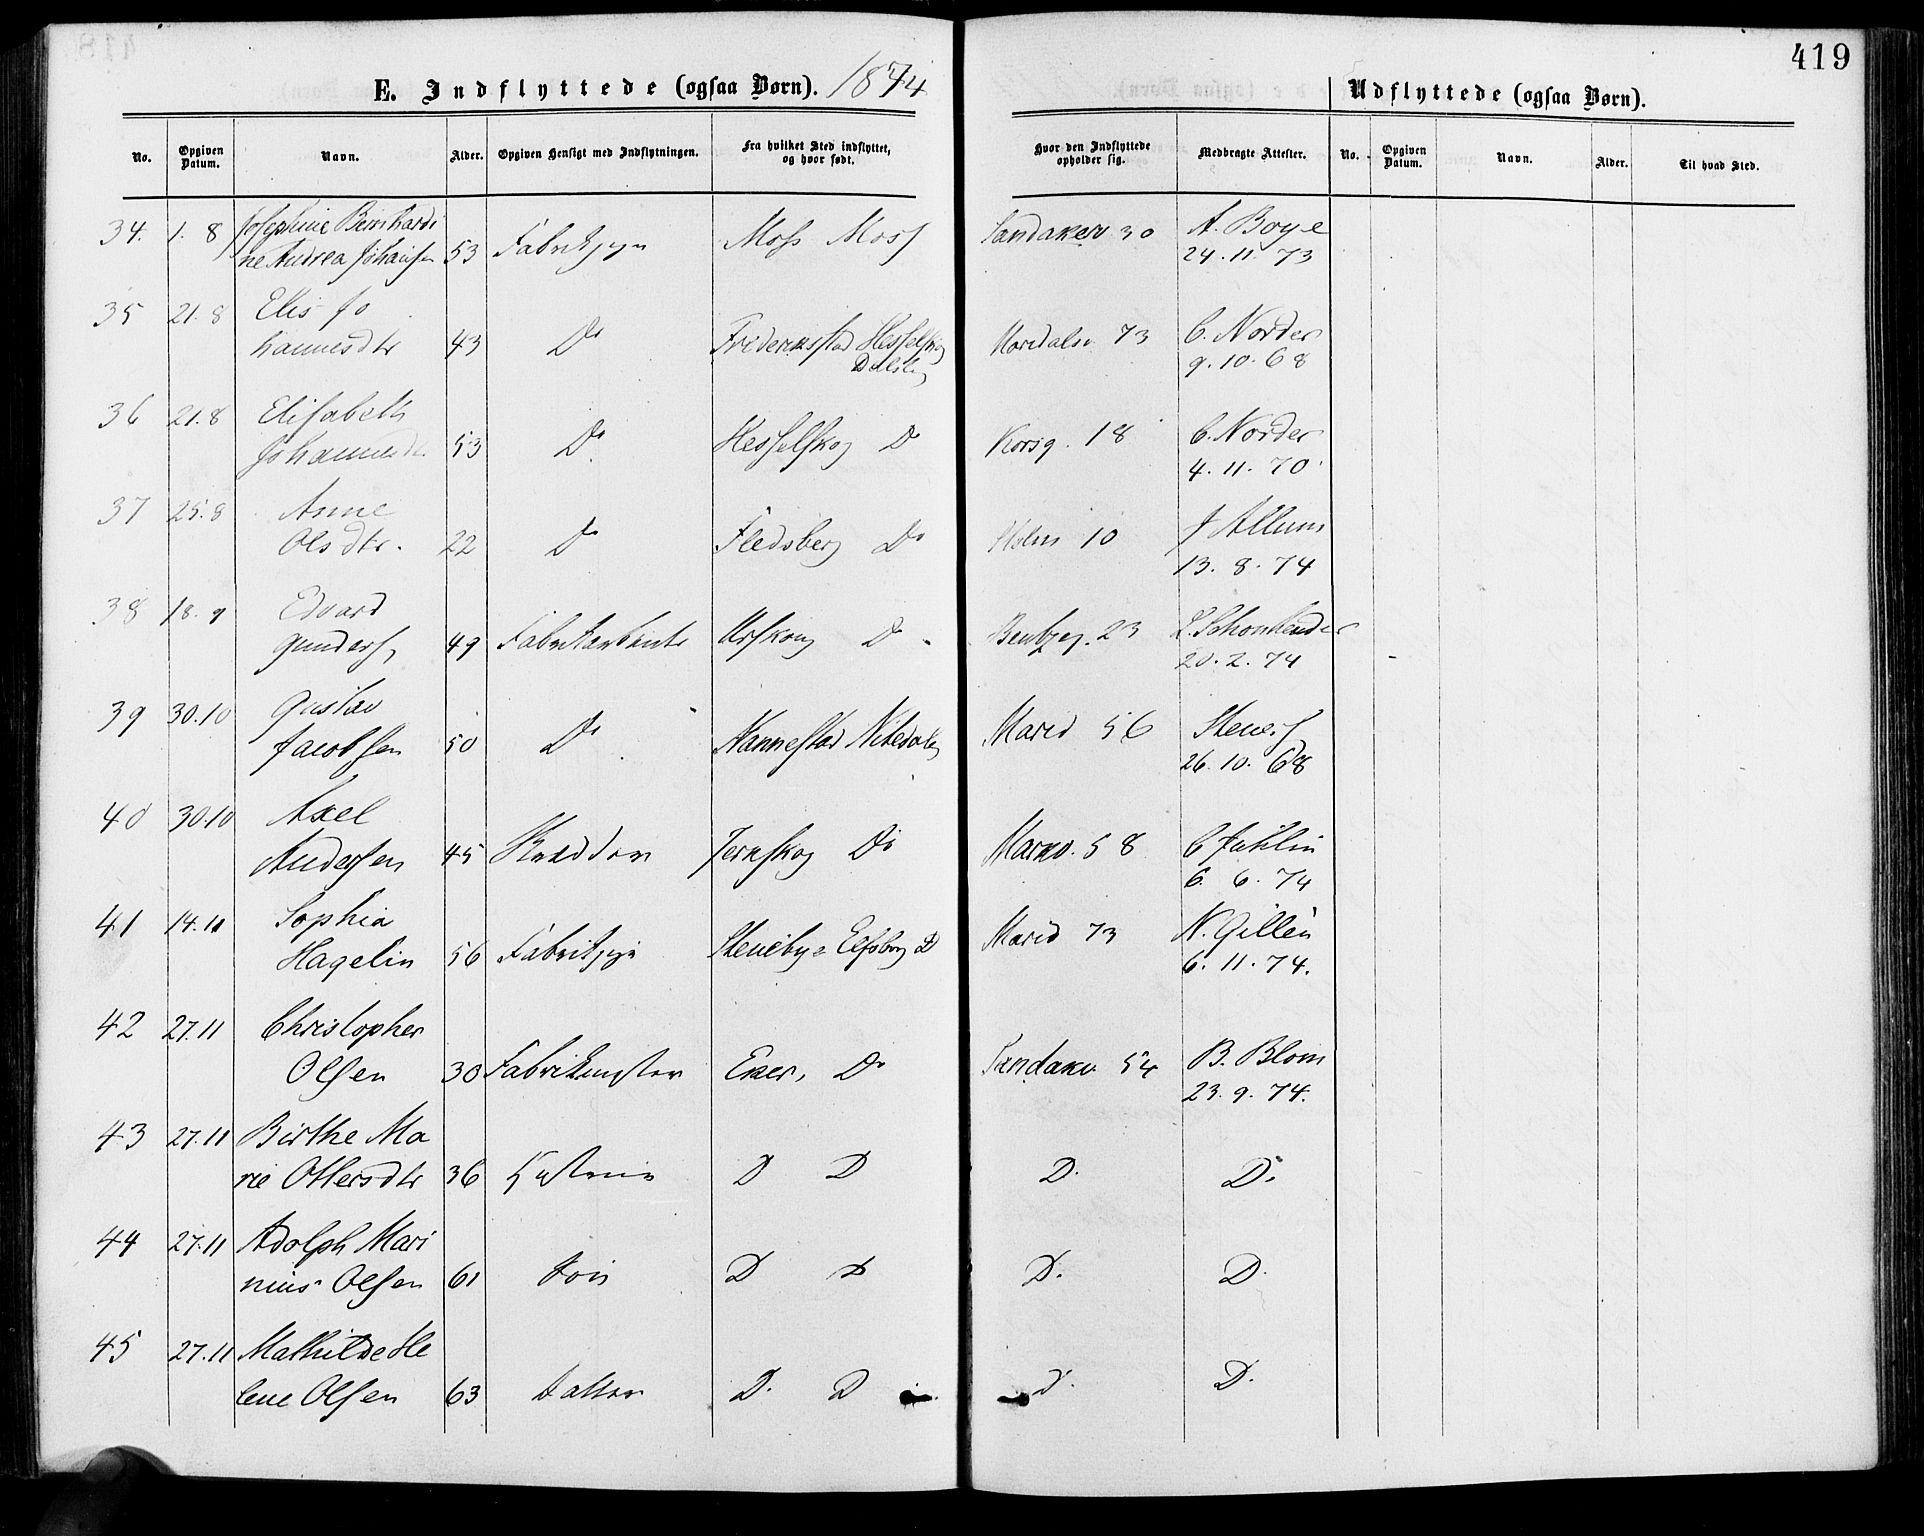 419
E. Indflyttede (ogsaa Børn). 1874
Udflyttede (ogsaa Børn).
No. Opgiven Datum. Navn. Alder. Opgiven Hensigt med Indflytningen. Fra hvilket Sted indflyttet, og hvor født. Hvor den Indflyttede opholder sig. Medbragte Attester. No. Opgiven Datum. Navn. Alder. Til hvad Sted.
34. 1. 8 Josephine Bernhardi Moss Moss Sandaker 30 A. Boye
ne Andrea Johansen 53 Fabrikpige 24. 11. 73
35 21. 8 Elis Jo
hannesdtr 43 Do Frederiksstad Hesselskog Maridalsv 73 C. Norder
Dalsl 9. 10. 68
36 21. 8 Elisabeth
Johannesdtr 53 Do Hesselskog Do Korsg. 18 C. Norder
4. 11. 70.
37 25. 8 Anne
Olsdtr. 22 Do Fledsberg Do Holm 10 J Allum
13. 8. 74
38 18. 9 Edvard
Gunders 49 Urskoug Do 23
20. 2. 74
39 30. 10 Gustav
Jacobsen 50 Do Nannestad Nitedalen Marid 56 Steners
26. 10. 68
40 30. 10 Axel
Andersen 45 Skrædder Jernskog Do 58 C
6. 6. 74
41 14. 11 Sophia
Hagelin 56 Fabrikpige Steneby Elfsborg D Marid 73 N. Gillén
6. 11. 74.
42 27. 11 Christopher
Olsen 30 Fabrikmester Eker, Do Sandaker 54 B. Blom
23. 9. 74.
43 27. 11 Birthe Ma
rie Ottersdtr 36 Hustru D D D. D.
44 27. 11 Adolph Mari
nius Olsen 61 Søn D D D. D.
45 27. 11 Mathilde He
lene Olsen 63 Datter D. D D. D.